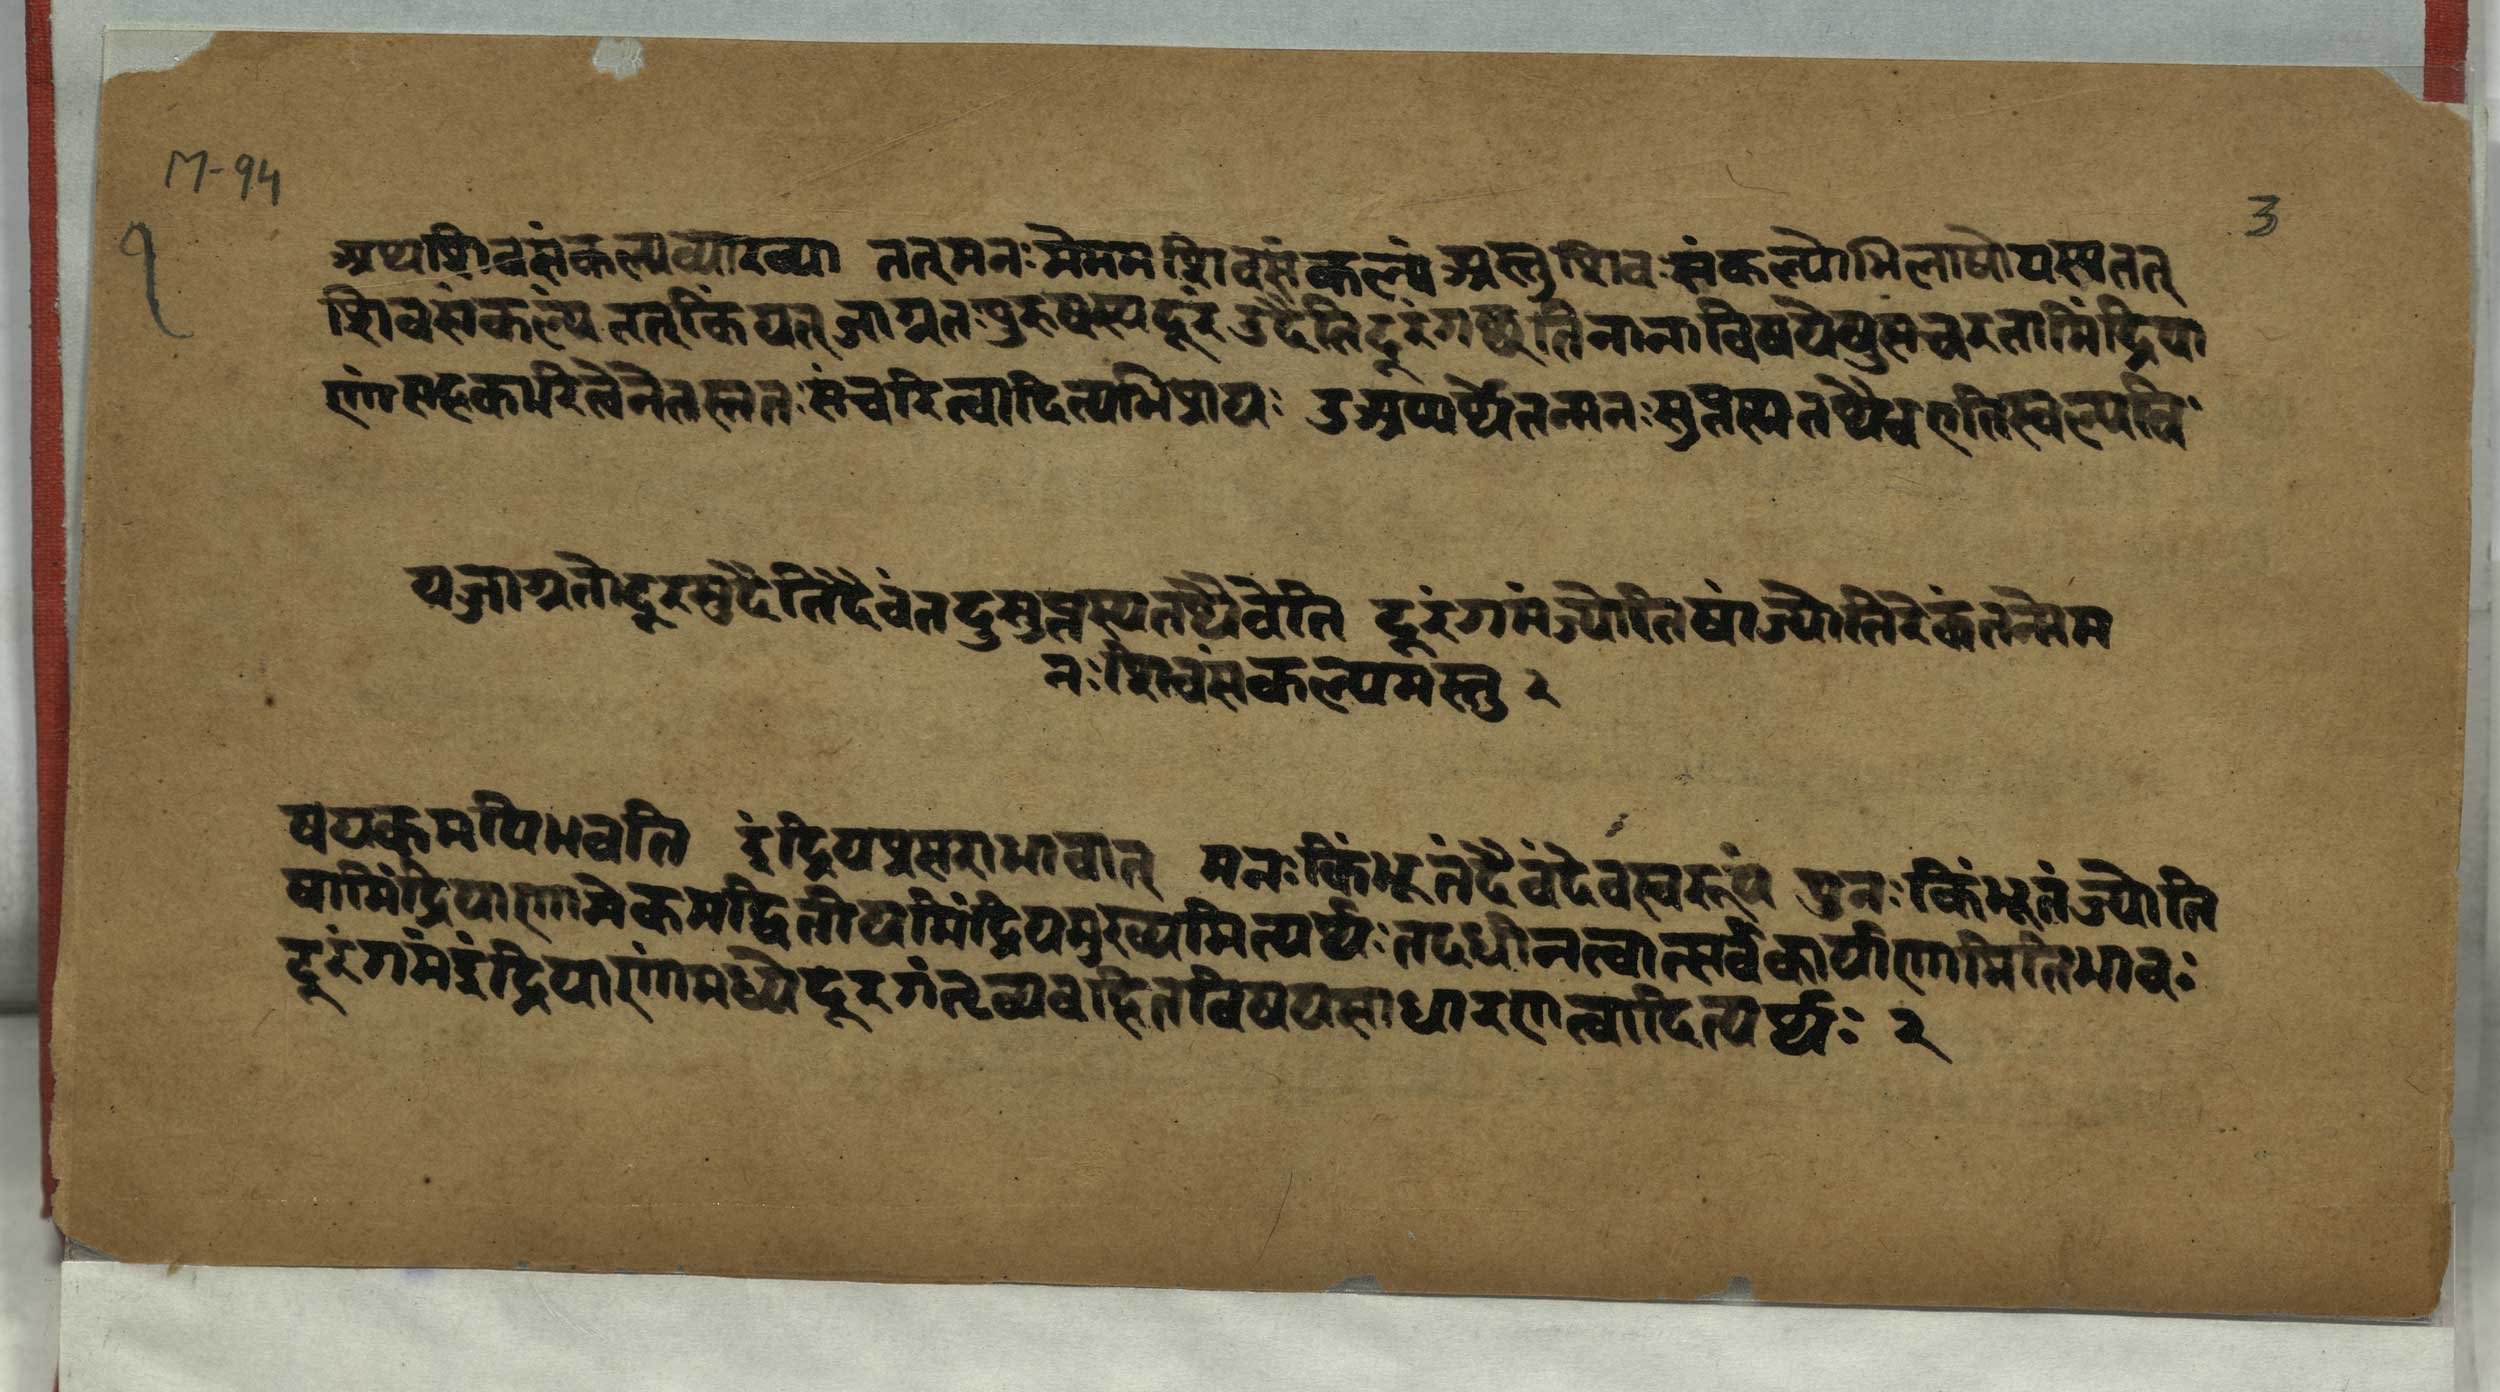 M-94
3
१
अथशिवसंकल्पव्याख्या ततमनःमेमम शिवसंकल्पं अस्तु शिवःसंकल्पोभिलाषोयस्यतत्
शिवसंकल्पं तत्किं यत् जाग्रतःपुरुषस्य दूरं उदैति दूरं गच्छति नानाविषयेषुसंचरतामिंद्रिया
णांसहकारित्वेनेतस्ततःसंचरित्वादित्यभिप्रायः उ अप्यर्थे तन्मनःसुप्तस्य तथैवएति स्वल्पवि
यज्जाग्रतोदूरमुदैतिदैवंतदुसुप्तस्यतथैवैति दूरंगमंज्योतिषांज्योतिरेकंतन्मेम
नःशिवसंकल्पमस्तु २
षयकमपिभवति इंद्रियप्रसराभावात् मनःकिंभूतंदैवंदेवस्वरूपं पुनःकिंभूतंज्योति
षामिंद्रियाणामेकमद्वितीयमिंद्रियमुख्यमित्यर्थः तदधीनत्वात्सर्वकार्याणामितिभावः
दूरंगमंइंद्रियाणांमध्येदूरगंतृव्यवहितविषयसाधारणत्वादित्यर्थः २